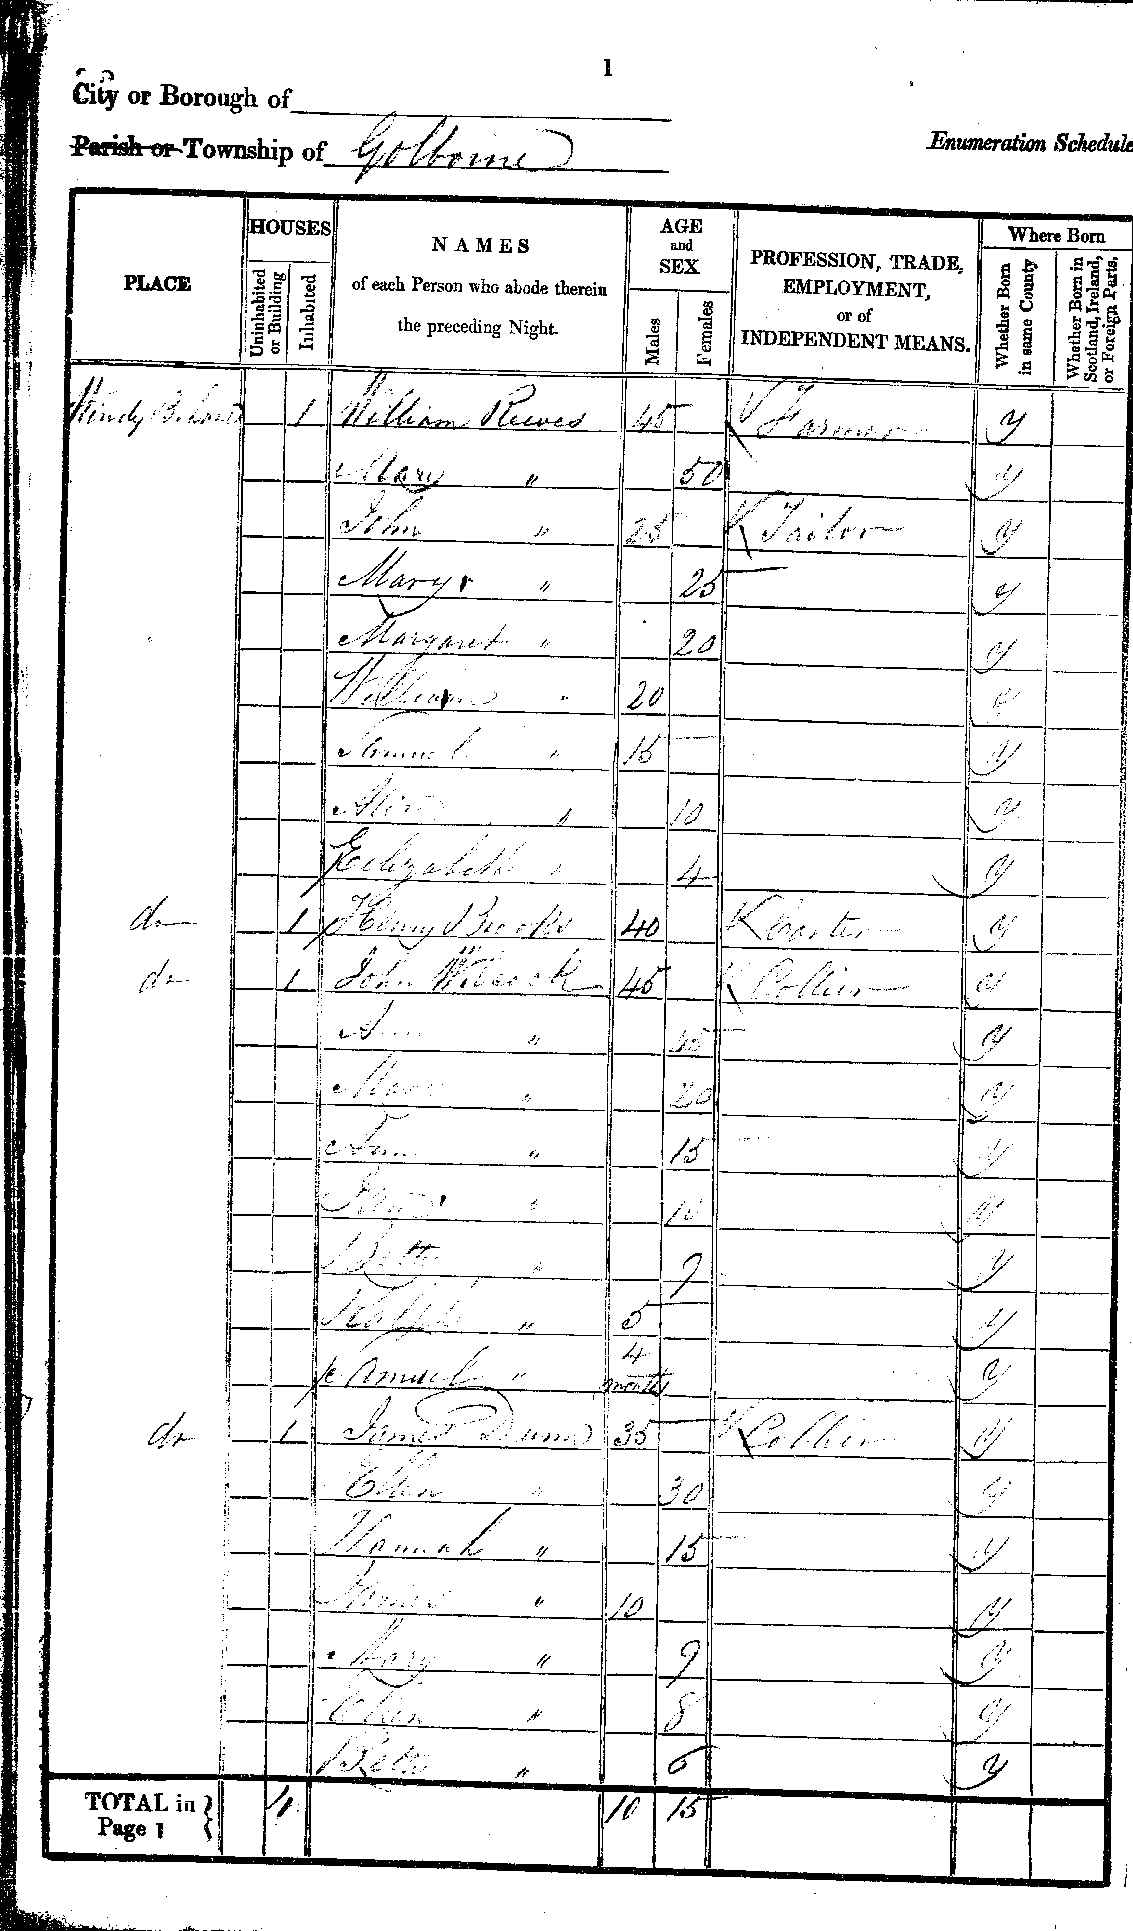 1
City or Borough of
Parish or Township of Golborne
Enumeration Schedule
PLACE
HOUSES
Uninhabited or Building
Inhabited
NAMES
of each Person who abode therein
the preceding Night.
AGE
and
SEX
Males
Females
PROFESSION, TRADE,
EMPLOYMENT,
or of
INDEPENDENT MEANS.
Where Born
Whether Born in same County
Whether Born in Scotland, Ireland, or Foreign Parts.
Windy 1 William Reeves 45 Farmer y
Mary " 50 y
John " 25 Tailor y
Mary " 25 y
Margaret " 20 y
William " 20 y
Samuel " 15 y
" 10 y
Elizabeth " 4 y
do 1 Henry Brooks 40 Carter y
do 1 John Wilcock 45 Collier y
Ann " 45 y
Mary " 20 y
Ann " 15 y
" 10 y
Betty " 9 y
Ralph " 5 y
Samuel " 4 months y
do 1 James Dunn 35 Collier y
Ellen " 30 y
Hannah " 15 y
James " 10 y
Mary " 9 y
Ellen " 8 y
" 6 y
TOTAL in Page 1 4 10 15